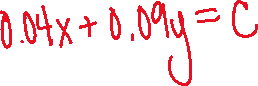 0.04x + 0.09y = C